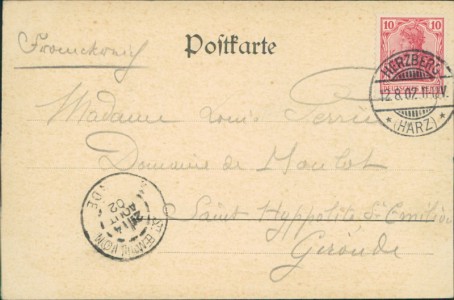 Franckreich
Postkarte
10 10
HERZBERG
12.8.02. 11-12V.
* (HARZ) *
Madame Louis Perrier
Domaine de Haulot
Saint Hyppolite St Emilion
Gironde
AOUT
02